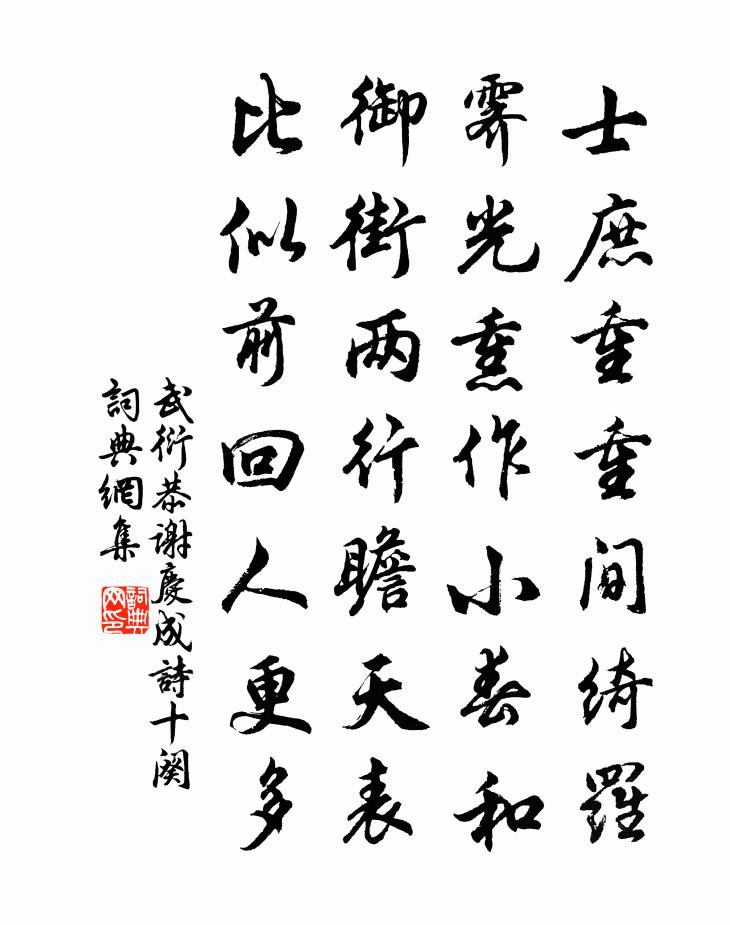 士庶重重間綺羅
霽光熏作小春和
御街两行瞻天表
比似前回人更多
武衍恭謝慶成詩十闋
詞典網集
詞典网印